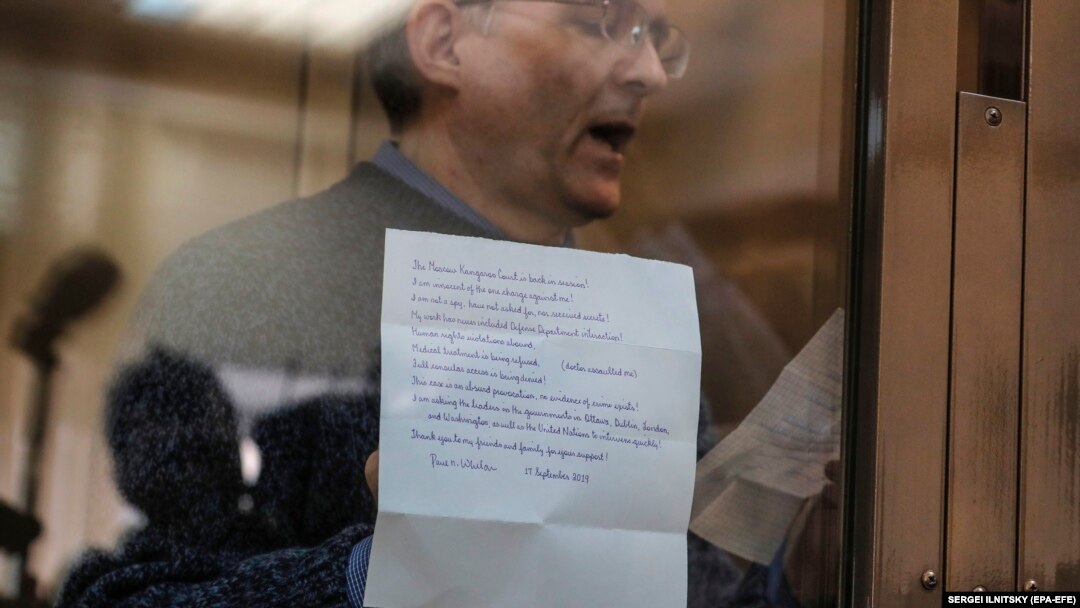 The Moscow Kangaroo Court is back in session!
I am innocent of the one charge against me!
I am not a spy, have not asked for, nor received secrets!
My work has never included Defense Department interaction!
Human rights violations abound.
Medical treatment is being refused. (doctor assaulted me)
Full consular access is being denied!
This case is an absurd provocation, no evidence of crime exists!
I am asking the leaders on the governments in Ottawa, Dublin, London,
and Washington, as well as the United Nations to intervene quickly!
Thank you to my friends and family for your support!
Paul N. Whelan 17 September 2019
SERGEI ILNITSKY (EPA-EFE)